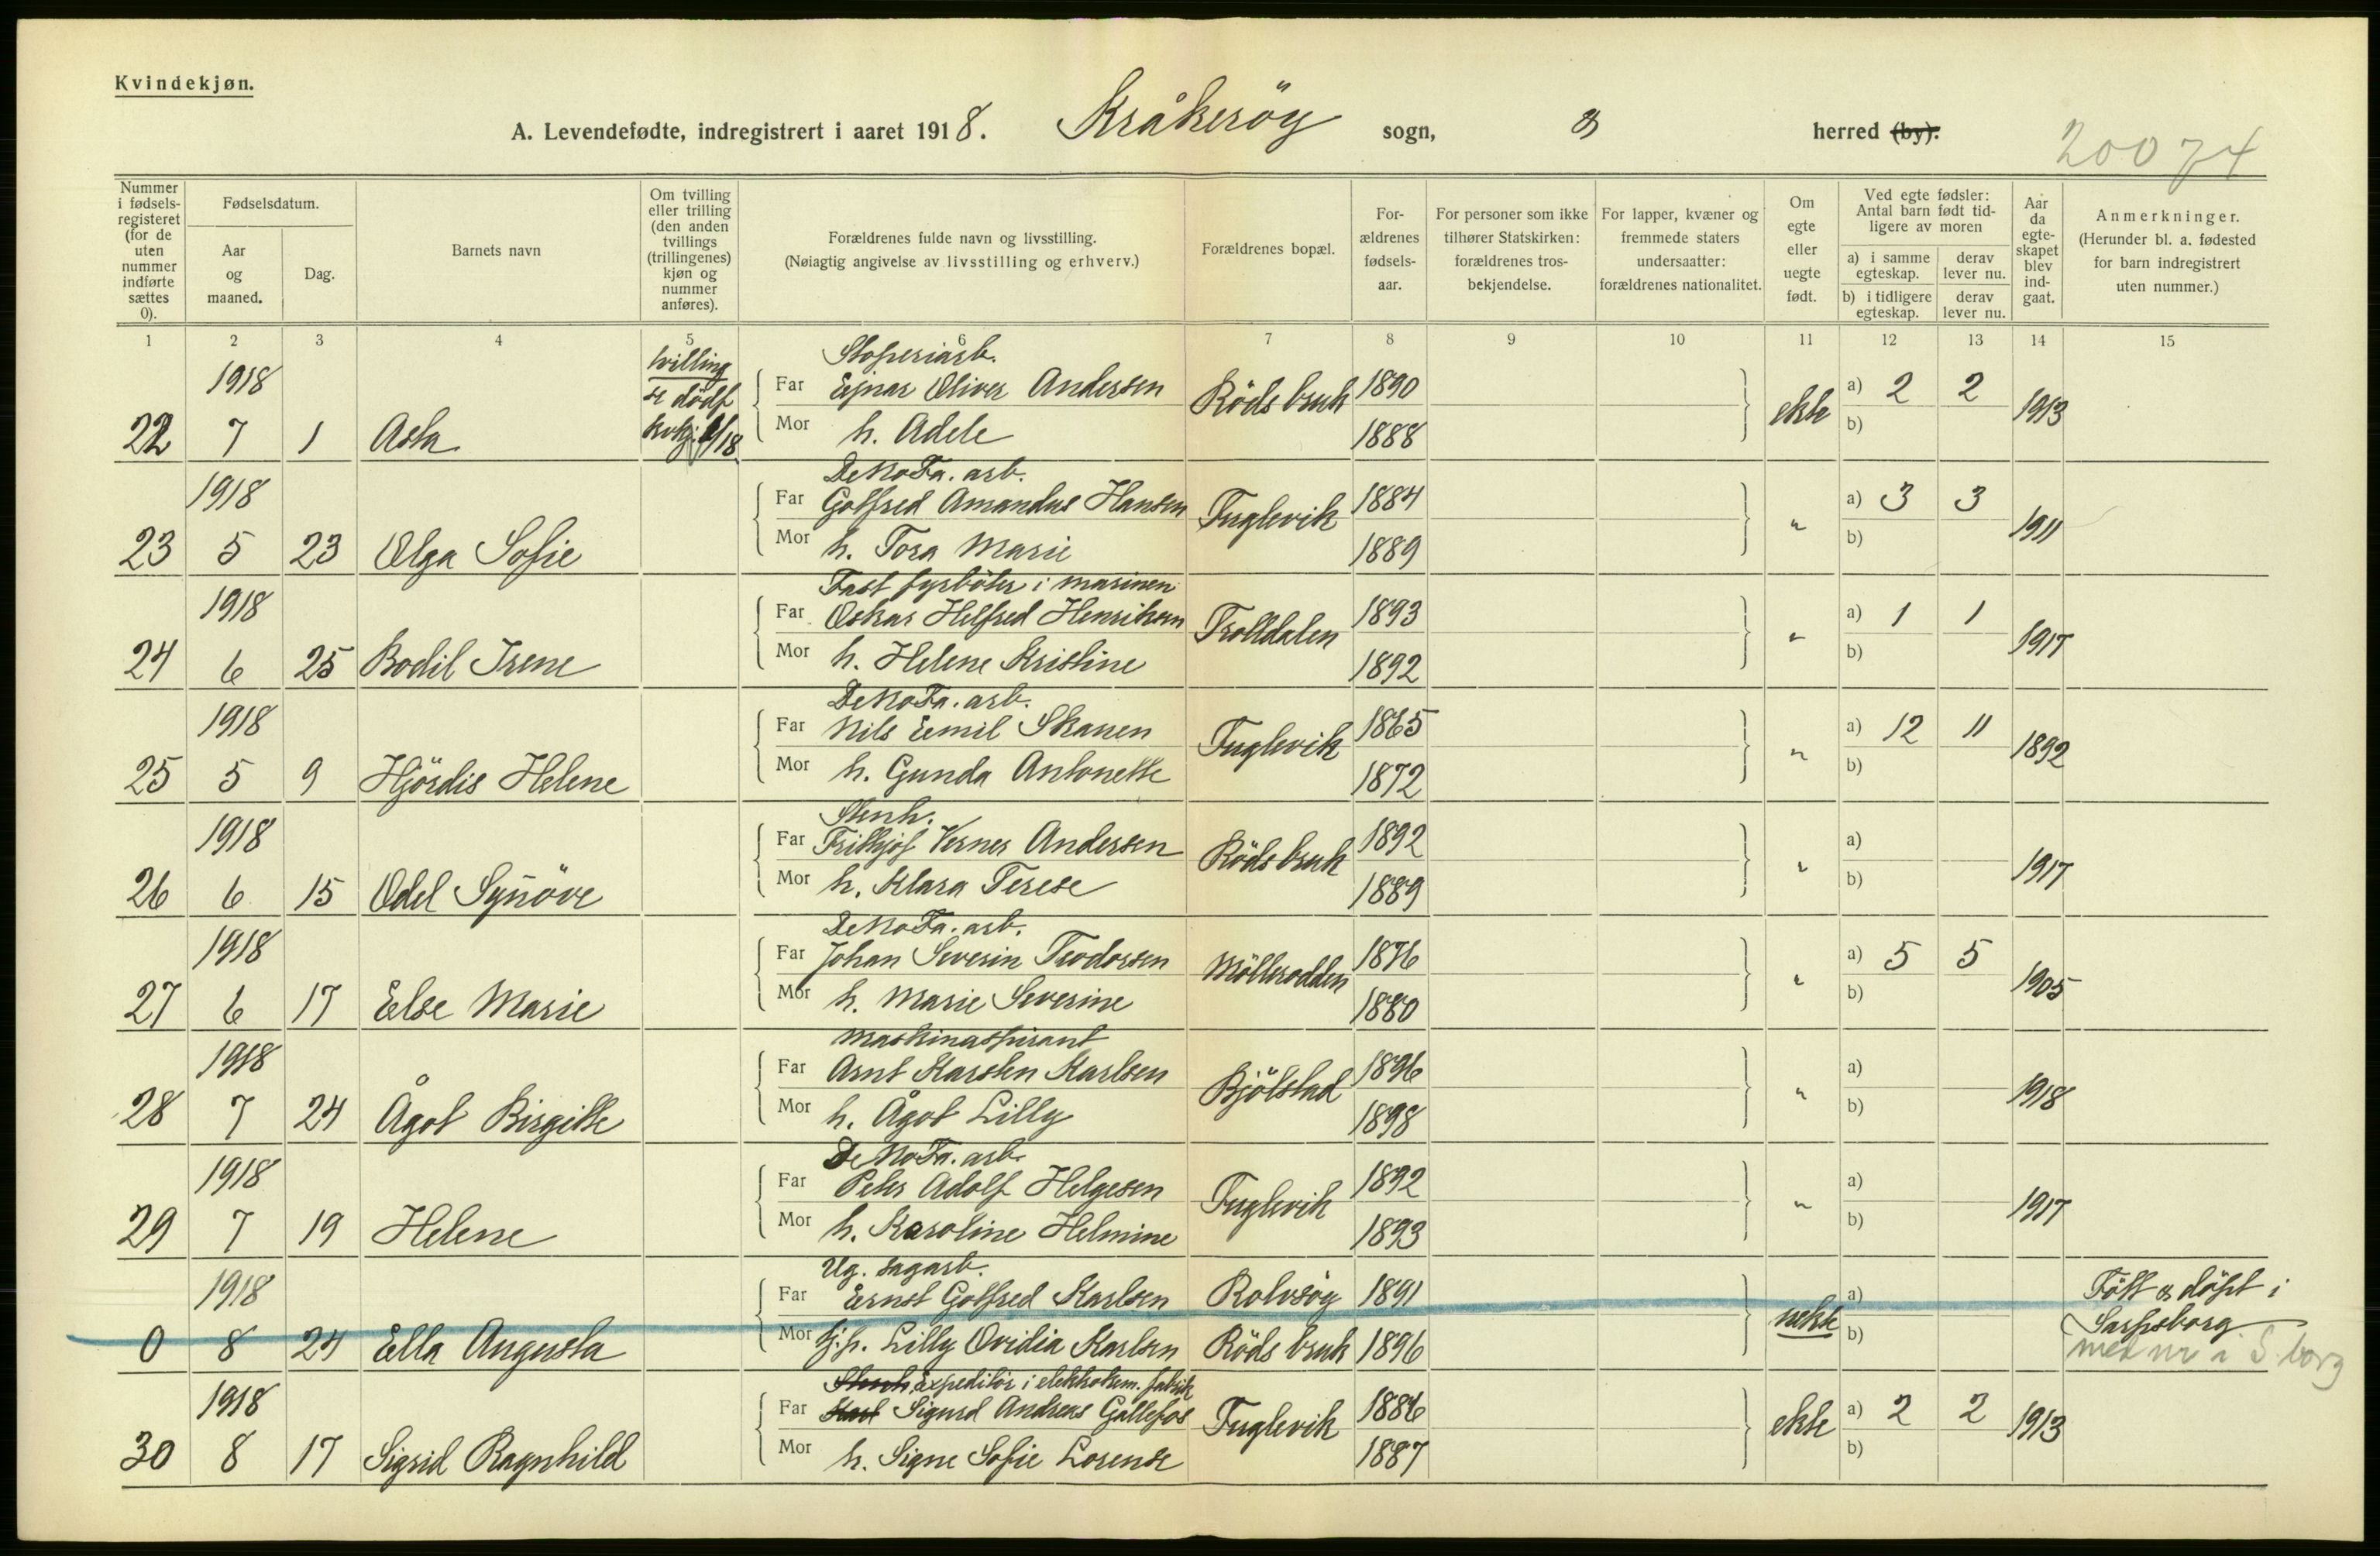 Kvindekjøn.
A. Levendefødte, indregistrert i aaret 1918. Kråkeröy sogn, " herred (by).
20074
Nummer i fødsels-registeret (for de uten nummer indførte sættes 0).
Fødselsdatum.
Aar og maaned.
Dag.
Barnets navn
Om tvilling eller trilling (den anden tvillings (trillingenes) kjøn og nummer anføres).
Forældrenes fulde navn og livsstilling.
(Nøiagtig angivelse av livsstilling og erhverv.)
Forældrenes bopæl.
For-ældrenes fødsels-aar.
For personer som ikke tilhører Statskirken: forældrenes tros-bekjendelse.
For lapper, kvæner og fremmede staters undersaatter: forældrenes nationalitet.
Om egte eller uegte født.
Ved egte fødsler: Antal barn født tid-ligere av moren
a) i samme egteskap.
derav lever nu.
b) i tidligere egteskap.
derav lever nu.
Aar da egte-skapet blev ind-gaat.
Anmerkninger.
(Herunder bl. a. fødested for barn indregistrert uten nummer.)
1 2 3 4 5 6 7 8 9 10 11 12 13 14 15
1918 tvilling Stoperiarb.
se dödf Far Ejnar Oliver Andersen Röds bruk 1890 ekte a) 2 2 1913
22 7 1 Asta kvkj. 1/18 Mor h. Adele 1888 b)
DeNoFa. arb.
1918 Far Golfred Amandus Hansen Fuglevik 1884 " a) 3 3 1911
23 5 23 Olga Sofie Mor h. Tora Marie 1889 b)
Fast fyrböter i marinen
1918 Far Oskar Helfred Henriksen Trolldalen 1893 " a) 1 1 1917
24 6 25 Bodil Irene Mor h. Helene Kristine 1892 b)
DeNoFa. arb.
1918 Far Nils Emil Skauen Fuglevik 1865 " a) 12 11 1892
25 5 9 Hjördis Helene Mor h. Gunda Antonette 1872 b)
Stenh.
1918 Far Fritkjof Verner Andersen Röds bruk 1892 " a) 1917
26 6 15 Odel Synöve Mor h. Klara Terese 1889 b)
DeNoFa. arb.
1918 Far Johan Severin Teodorsen Möllerodden 1876 " a) 5 5 1905
27 6 17 Else Marie Mor h. Marie Severine 1880 b)
Maskinaspirant
1918 Far Arnt Karsten Karlsen Bjölstad 1896 " a) 1918
28 7 24 Ågot Birgitte Mor h. Ågot Lilly 1898 b)
DeNoFa. arb.
1918 Far Peter Adolf Helgesen Fuglevik 1892 " a) 1917
29 7 19 Helene Mor h. Karoline Helmine 1893 b)
Ug. sagarb.
1918 Far Ernst Golfred Karlsen Rolvsöy 1891 uekte a) Födt & döpt i
0 8 24 Ella Augusta Mor Tj.p. Lilly Ovidia Karlsen Röds bruk 1896 b) Sarpsborg
med nr i S.borg
Stenh. Expeditör i elektrokem. fabrik
1918 Far Karl Sigurd Andreas Gällefos Fuglevik 1886 ekte a) 2 2 1913
30 8 17 Sigrid Ragnhild Mor h. Signe Sofie Lorense 1887 b)